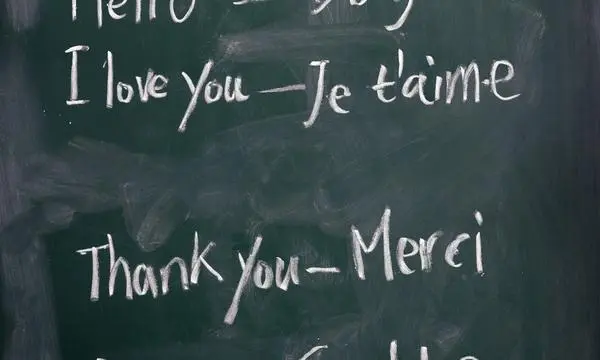 Hello –
I love you — Je t'aime
Thank you – Merci